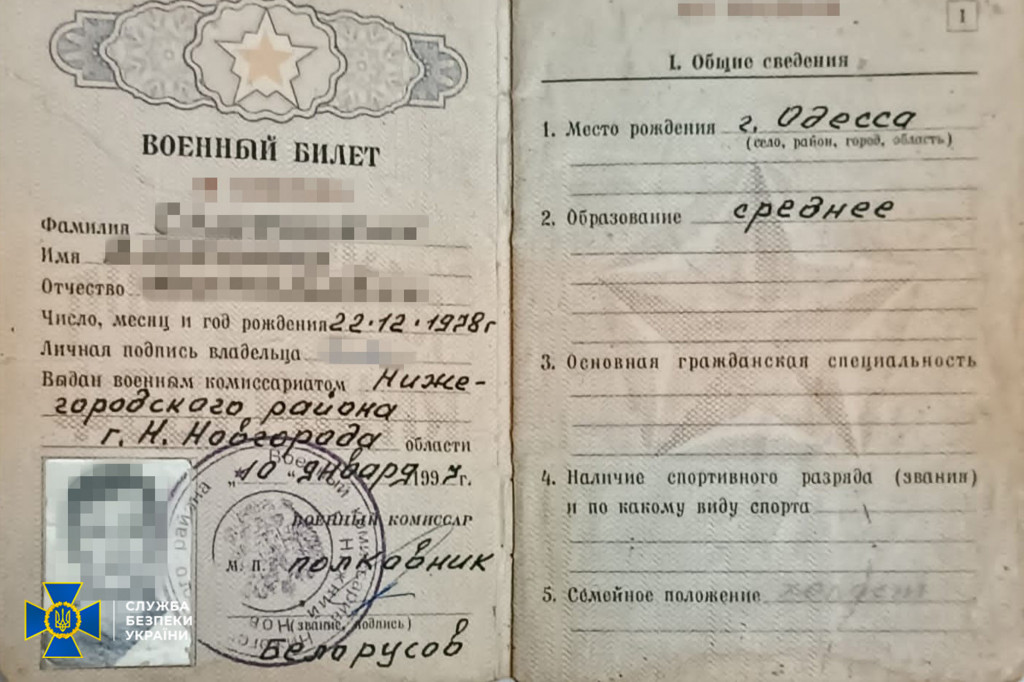 ВОЕННЫЙ БИЛЕТ
Фамилия
Имя
Отчество
Число, месяц и год рождения 22.12.1978г
Личная подпись владельца
Выдан военным комиссариатом Ниже-
городского района
г. Н. Новгорода области
„10" января 1997г.
ВОЕННЫЙ КОМИССАР
М. П. полковник
(звание, подпись)
Беларусов
СЛУЖБА
БЕЗПЕКИ
УКРАЇНИ
1
I. Общие сведения
1. Место рождения г. Одесса
(село, район, город, область)
2. Образование среднее
3. Основная гражданская специальность
4. Наличие спортивного разряда (звания)
и по какому виду спорта
5. Семейное положение